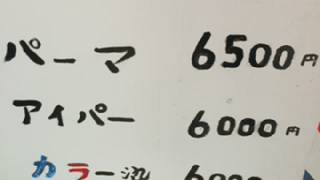 パーマ 6500円
アイパー 6000円
カラー染 6000